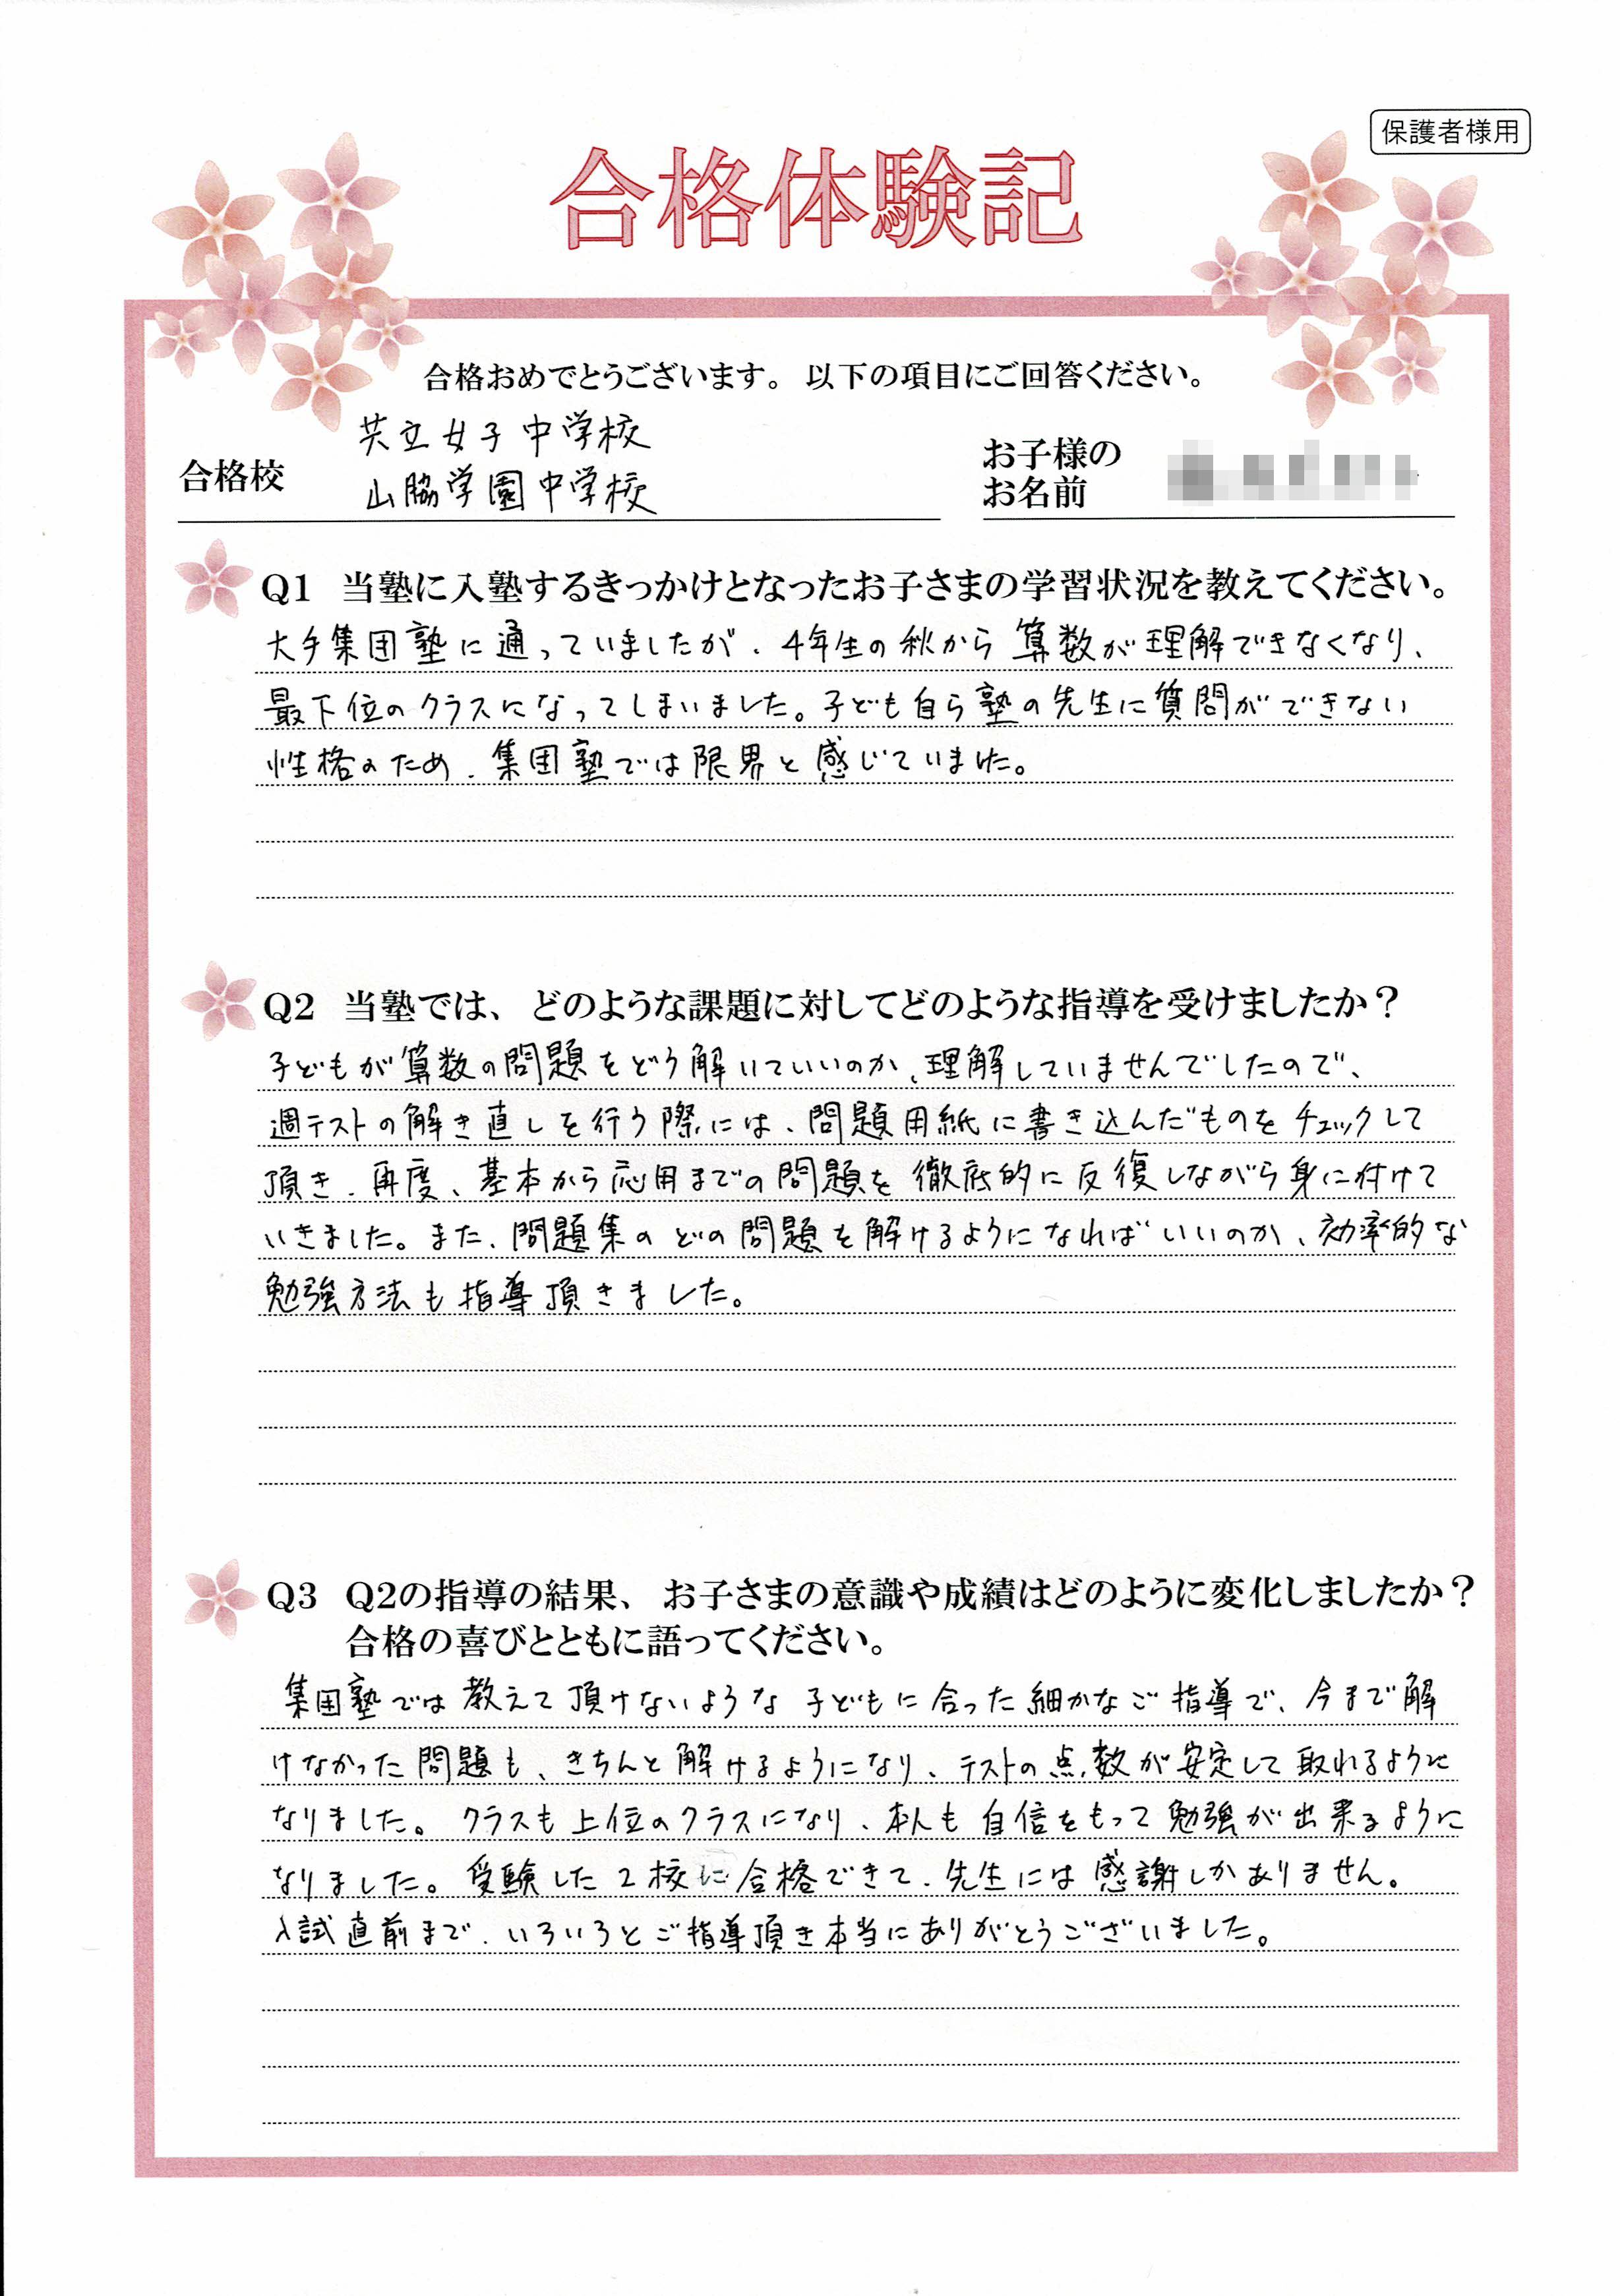 保護者様用
合格体験記
合格おめでとうございます。 以下の項目にご回答ください。
合格校
共立女子中学校
山脇学園中学校
お子様の
お名前
Q1 当塾に入塾するきっかけとなったお子さまの学習状況を教えてください。
大手集団塾に通っていましたが、4年生の秋から算数が理解できなくなり、
最下位のクラスになってしまいました。子ども自ら塾の先生に質問ができない
性格のため、集団塾では限界と感じていました。
Q2 当塾では、どのような課題に対してどのような指導を受けましたか？
子どもが算数の問題をどう解いていいのか、理解していませんでしたので、
週テストの解き直しを行う際には、問題用紙に書き込んだものをチェックして
頂き、再度、基本から応用までの問題を徹底的に反復しながら身に付けて
いきました。また、問題集のどの問題を解けるようになればいいのか、効率的な
勉強方法も指導頂きました。
Q3 Q2の指導の結果、お子さまの意識や成績はどのように変化しましたか？
合格の喜びとともに語ってください。
集団塾では教えて頂けないような子どもに合った細かなご指導で、今まで解
けなかった問題も、きちんと解けるようになり、テストの点数が安定して取れるように
なりました。クラスも上位のクラスになり、本人も自信をもって勉強が出来るように
なりました。受験した2校に合格できて、先生には感謝しかありません。
入試直前まで、いろいろとご指導頂き本当にありがとうございました。